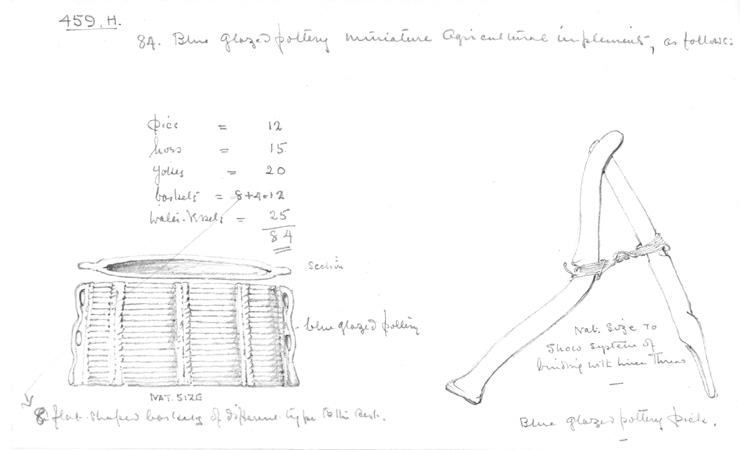 459, H.
84. Blue glazed pottery miniature Agricultural implements, as follows:
picks = 12
hoes = 15
yokes = 20
baskets = 8+4=12
water-vessels = 25
84
Section
blue glazed pottery
NAT. SIZE
8 flat-shaped baskets of different type to the rest.
Nat. Size to
show system of
binding with linen thread
Blue glazed pottery pick.